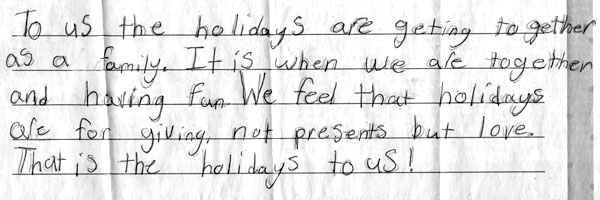 To us the holidays are geting together
as a family. It is when we are together
and having fun. We feel that holidays
are for giving, not presents but love.
That is the holidays to us!